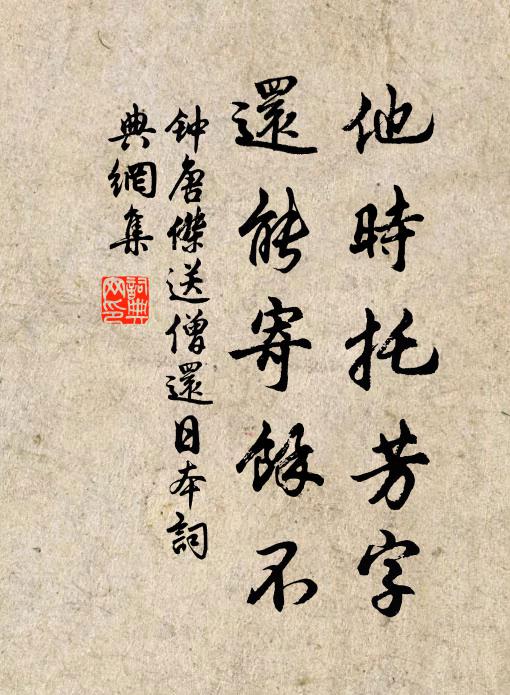 他時托芳字
還能寄餘不
钟唐傑送僧還日本詞
典網集
詞典
网印